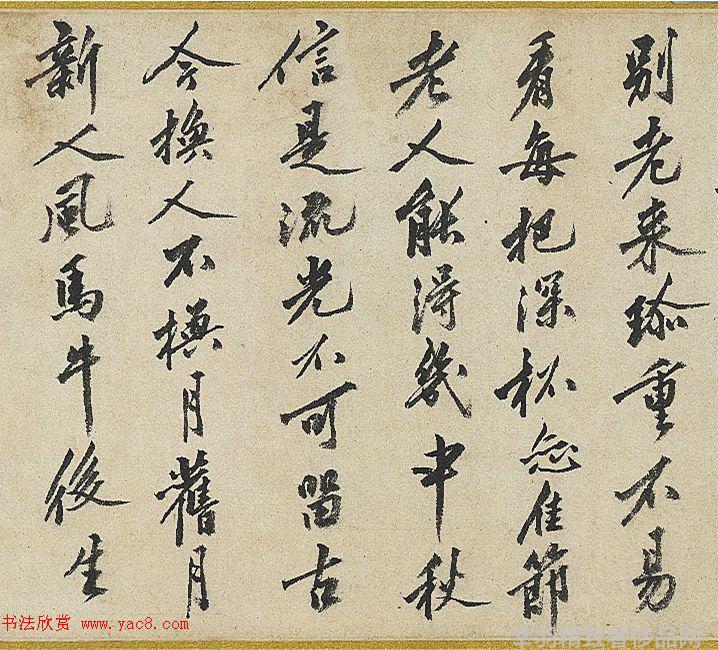 別老来珎重不易
看每把深杯恋佳節
老人能得幾中秋
信是流光不可留古
今換人不換月舊月
新人風馬牛後生
书法欣赏 www.yac8.com